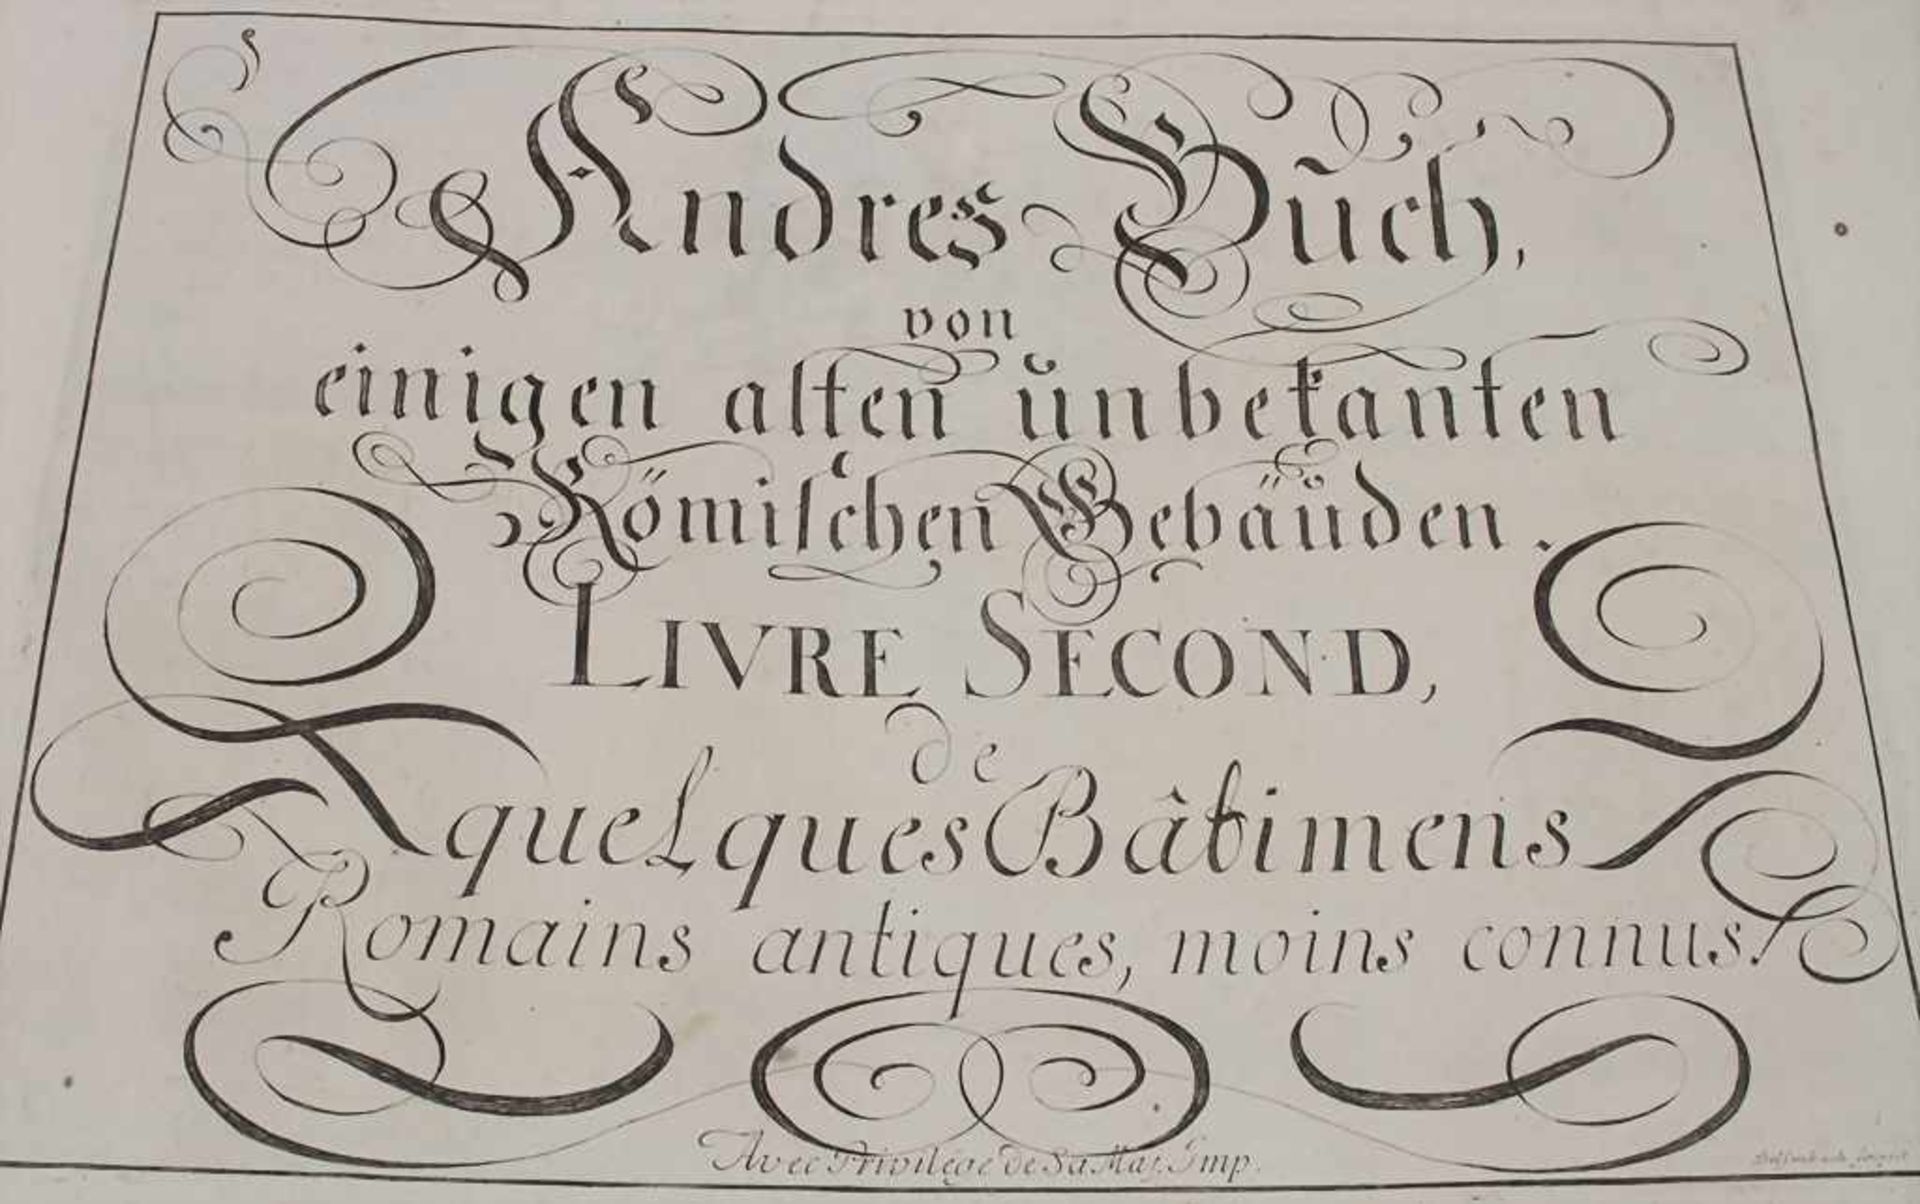 Andres Bŭch,
von
einigen alten ŭnbekanten
Römischen Gebäŭden.
LIVRE SECOND,
de
quelques Bâtimens
Romains antiques, moins connus.
Avec Privilege de Sa Maj. Imp.